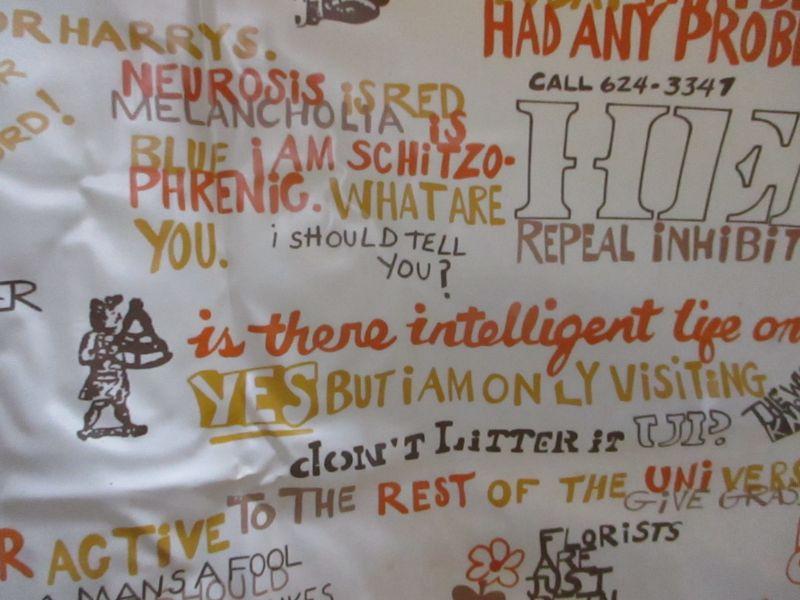 OR HARRYS.
HAD ANY PROB
CALL 624-3347
NEUROSiS iS RED
MELANCHOLIA iS
BLUE i AM SCHiTZO-
PHRENiC. WHAT ARE
YOU.
i SHOULD TELL
YOU?
REPEAL iNHIBiT
ER
is there intelligent life on
YES BUT i AM ONLY ViSiTiNG
dON'T LiTTER iT UJI?
TO THE REST OF THE UNiVERS
GiVE GRAS
R ACTiVE
A MAN'S A FOOL
SHOULD
FLORiSTS
ARE
JUST